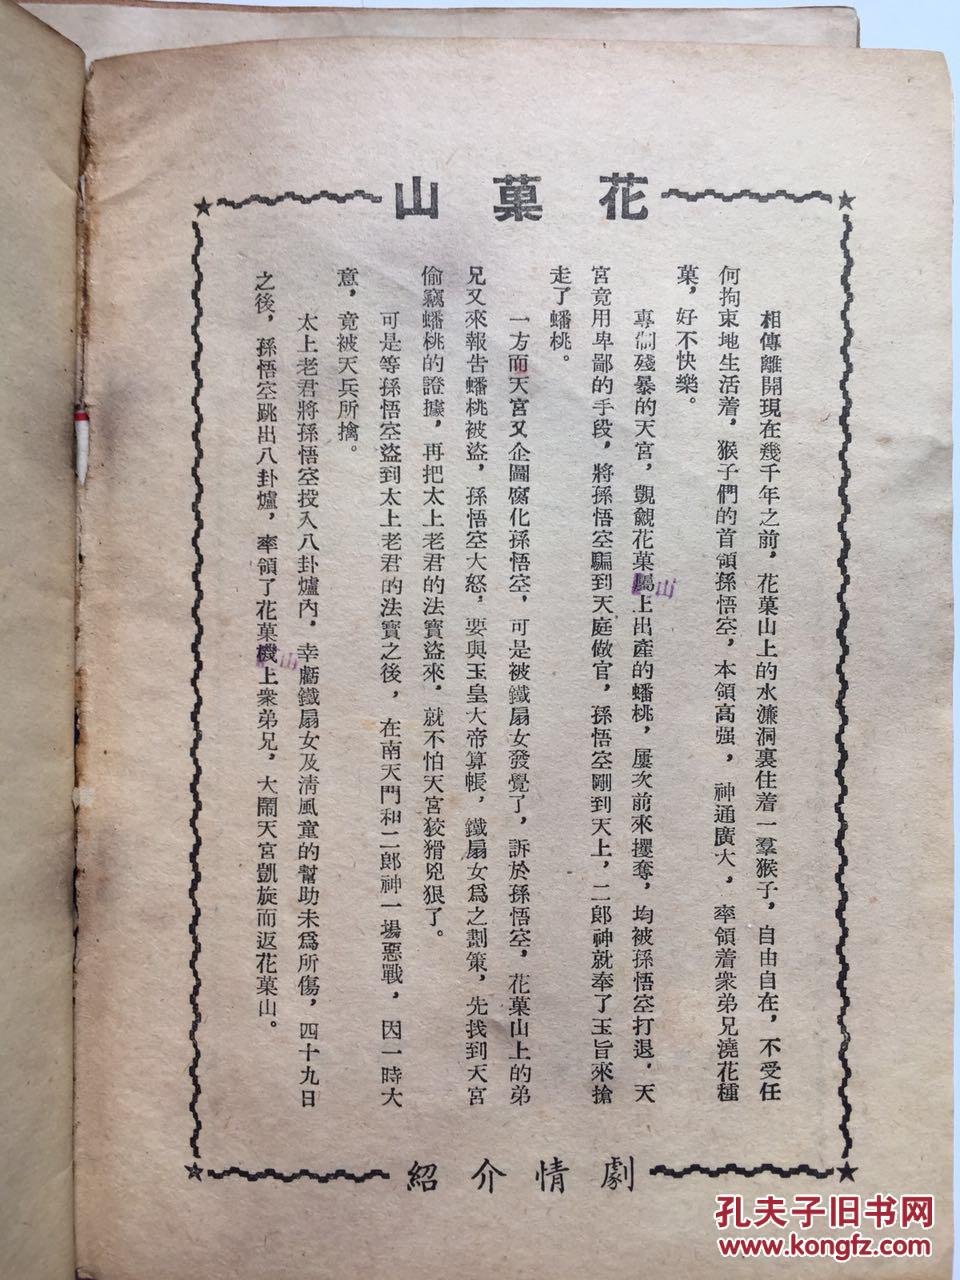 花菓山
相傳離開現在幾千年之前，花菓山上的水濂洞裏住着一羣猴子，自由自在，不受任
何拘束地生活着，猴子們的首領孫悟空，本領高强，神通廣大，率領着衆弟兄澆花種
菓，好不快樂。
專制殘暴的天宮，覬覦花菓山上出產的蟠桃，屢次前來攫奪，均被孫悟空打退，天
宮竟用卑鄙的手段，將孫悟空騙到天庭做官，孫悟空剛到天上，二郎神就奉了玉旨來搶
走了蟠桃。
一方而天宮又企圖腐化孫悟空，可是被鐵扇女發覺了，訴於孫悟空，花菓山上的弟
兄又來報告蟠桃被盜，孫悟空大怒，要與玉皇大帝算帳，鐵扇女爲之劃策，先找到天宮
偷竊蟠桃的證據，再把太上老君的法寶盜來，就不怕天宮狡猾兇狠了。
可是等孫悟空盜到太上老君的法寶之後，在南天門和二郎神一場惡戰，因一時大
意，竟被天兵所擒。
太上老君將孫悟空投入八卦爐內，幸虧鐵扇女及淸風童的幫助未爲所傷，四十九日
之後，孫悟空跳出八卦爐，率領了花菓山上衆弟兄，大鬧天宮凱旋而返花菓山。
劇情介紹
孔夫子旧书网
www.kongfz.com